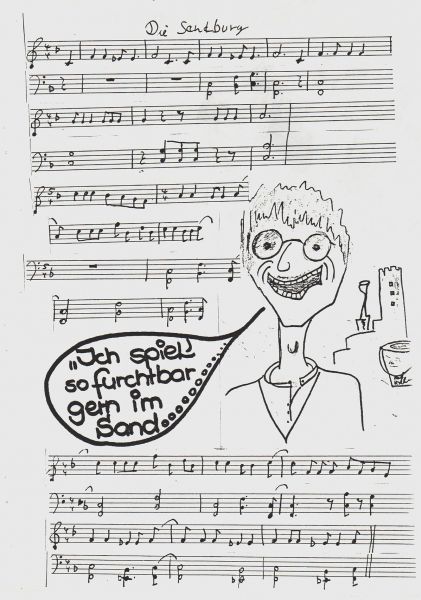 Die Sandburg
„Ich spiel'
so furchtbar
gern im
Sand.......